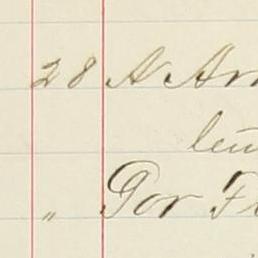 28 A Ar
leu
" Gor F